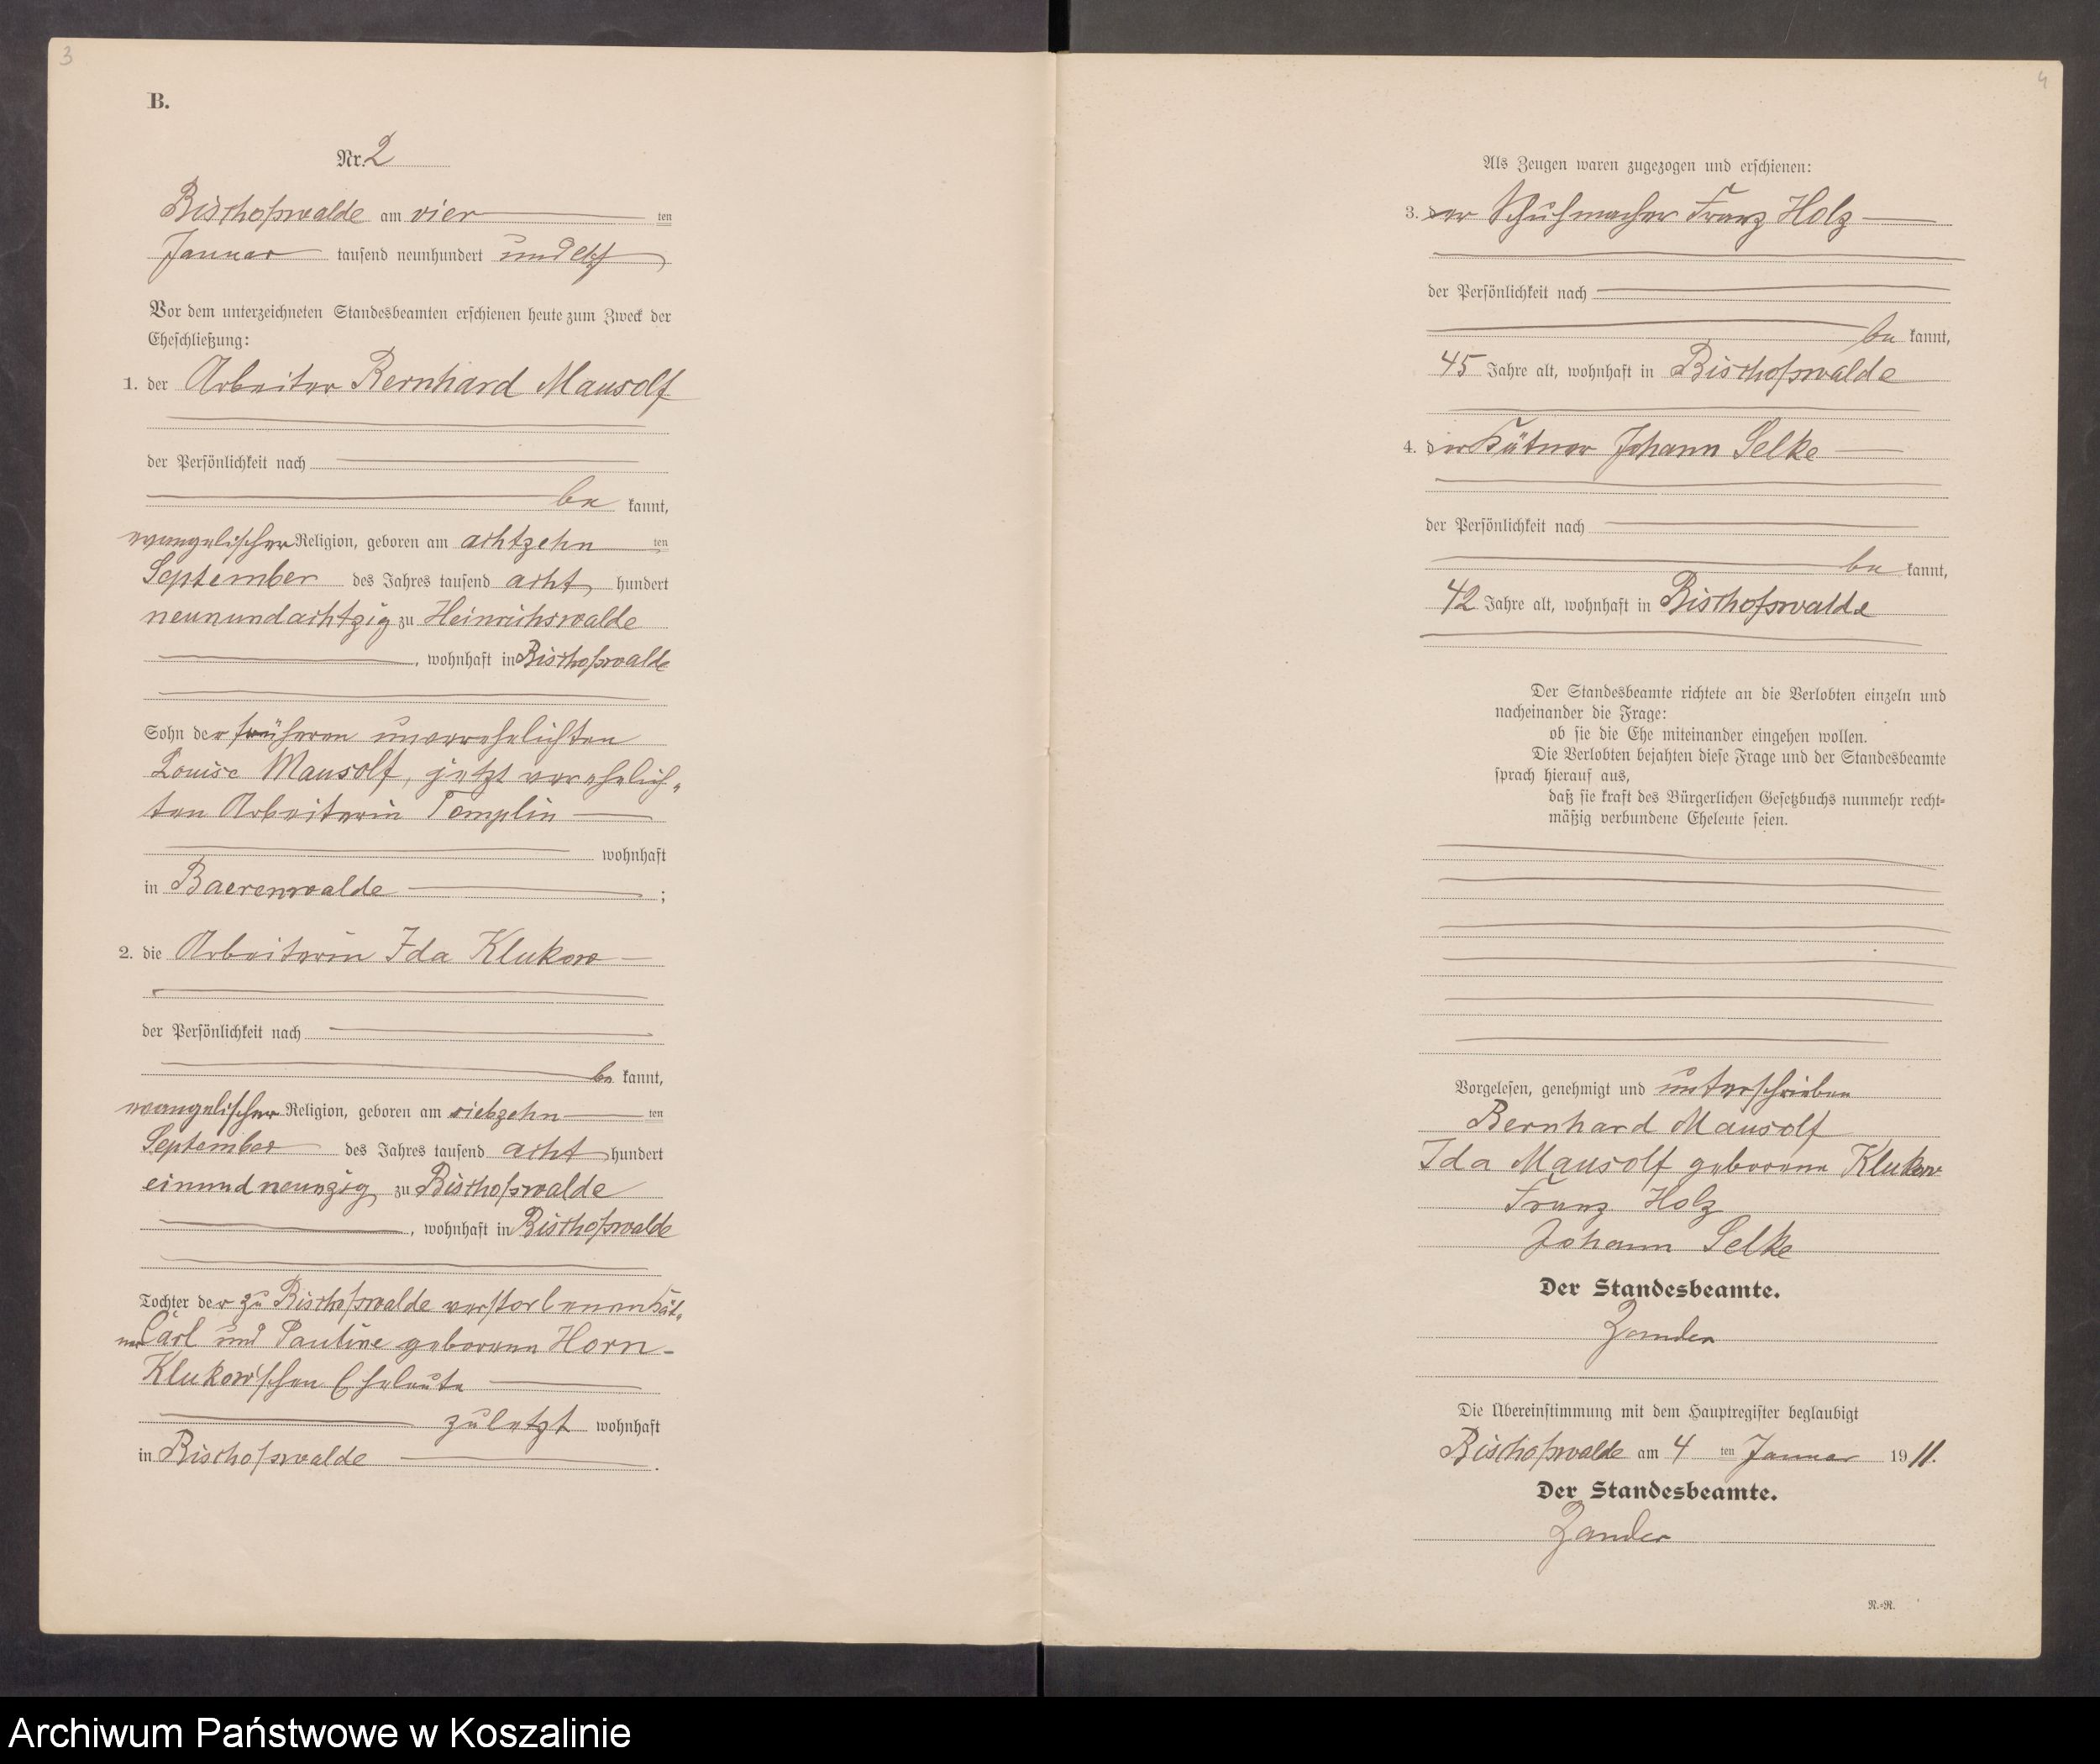 3
B.
Nr. 2
Bischofswalde am vier ten
Januar tausend neunhundert und elf
Vor dem unterzeichneten Standesbeamten erschienen heute zum Zweck der
Eheschließung:
1. der Arbeiter Bernhard Mausolf
der Persönlichkeit nach
be kannt,
evangelischer Religion, geboren am achtzehn ten
September des Jahres tausend acht hundert
neunundachtzig zu Heinrichswalde
, wohnhaft in Bischofswalde
Sohn der früheren unverehelichten
Louise Mausolf, jetzt verehelich„
ten Arbeiterin Templin
wohnhaft
in Baerenwalde ;
2. die Arbeiterin Ida Klukow
der Persönlichkeit nach
be kannt,
evangelischer Religion, geboren am siebzehn ten
September des Jahres tausend acht hundert
einundneunzig zu Bischofswalde
, wohnhaft in Bischofswalde
Tochter der zu Bischofswalde verstorbenen Kät„
ner Carl und Pauline geborene Horn-
Klukow'schen Eheleute
zuletzt wohnhaft
in Bischofswalde .
4
Als Zeugen waren zugezogen und erschienen:
3. der Schuhmacher Franz Holz
der Persönlichkeit nach
be kannt,
45 Jahre alt, wohnhaft in Bischofswalde
4. der Kätner Johann Selke
der Persönlichkeit nach
be kannt,
42 Jahre alt, wohnhaft in Bischofswalde
Der Standesbeamte richtete an die Verlobten einzeln und
nacheinander die Frage:
ob sie die Ehe miteinander eingehen wollen.
Die Verlobten bejahten diese Frage und der Standesbeamte
sprach hierauf aus,
daß sie kraft des Bürgerlichen Gesetzbuchs nunmehr recht-
mäßig verbundene Eheleute seien.
Vorgelesen, genehmigt und unterschrieben
Bernhard Mausolf
Ida Mausolf geborene Klukow
Franz Holz
Johann Selke
Der Standesbeamte.
Zander
Die Übereinstimmung mit dem Hauptregister beglaubigt
Bischofswalde am 4 ten Januar 1911.
Der Standesbeamte.
Zander
R.-R.
Archiwum Państwowe w Koszalinie